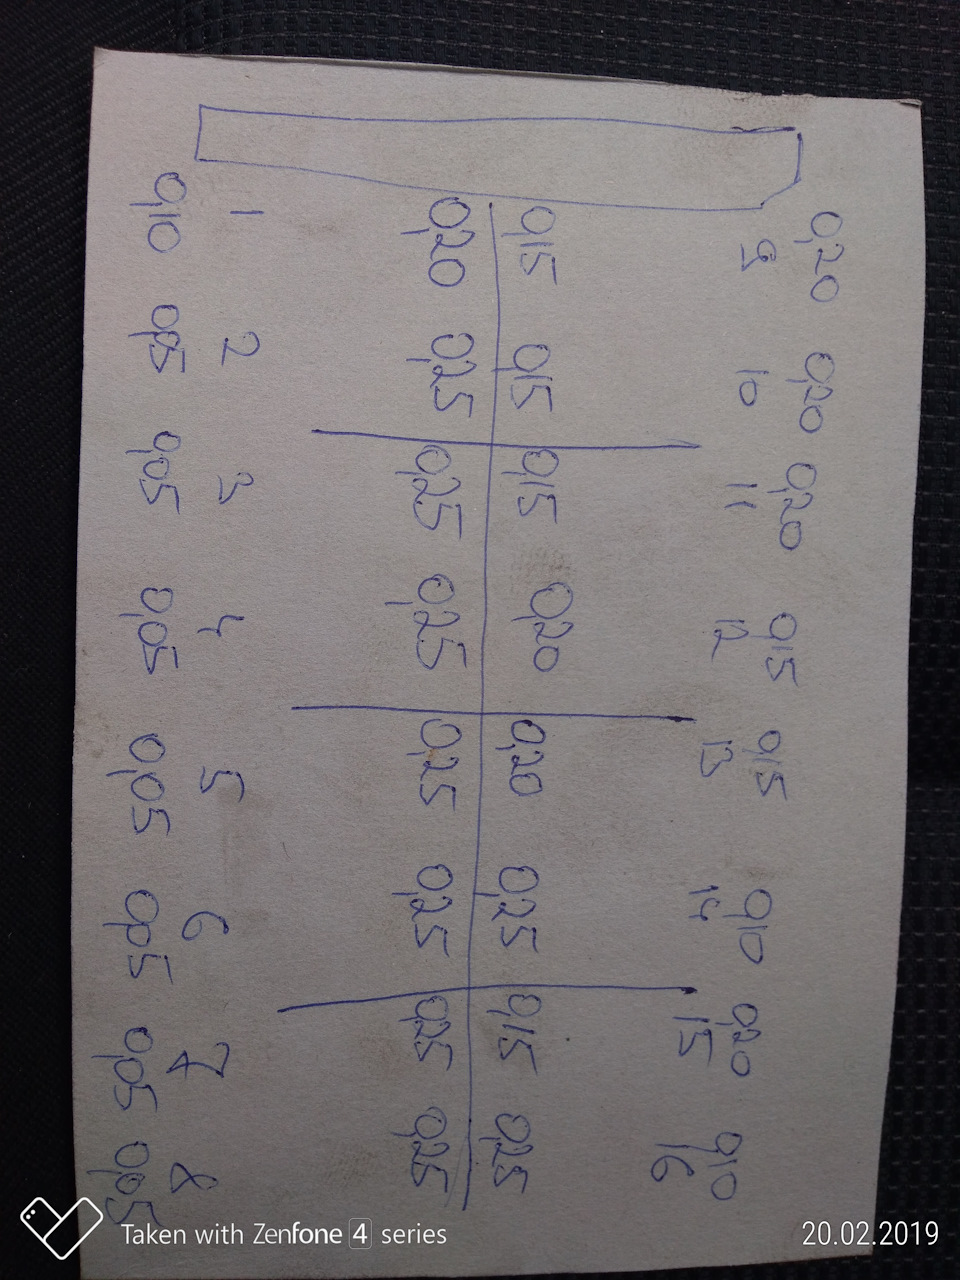 0,20 0,20 0,20 0,15 0,15 0,10 0,20 0,10
9 10 11 12 13 14 15 16
0,15 0,15 0,15 0,20 0,20 0,25 0,15 0,25
0,20 0,25 0,25 0,25 0,25 0,25 0,25 0,25
1 2 3 4 5 6 7 8
0,10 0,05 0,05 0,05 0,05 0,05 0,05 0,05
Taken with Zenfone 4 series
20.02.2019